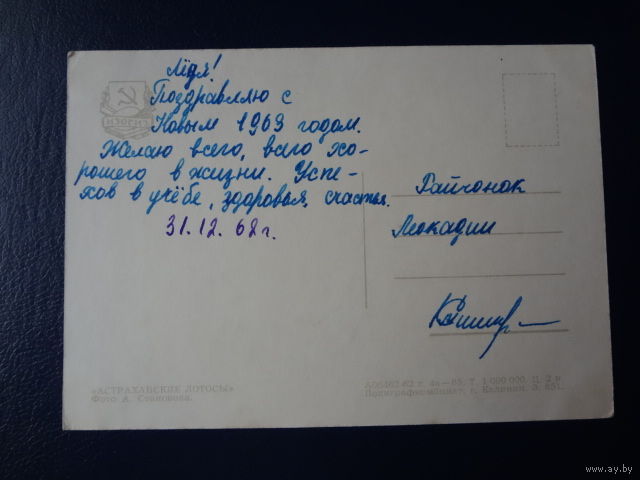 Лёдя!
Поздравляю с
Новым 1963 годом.
Желаю всего, всего хо-
рошего в жизни. Успе-
хов в учёбе, здоровья, счастья.
31.12.62 г.
Райчонок
Леокадии
ИЗОГИЗ
«АСТРАХАНСКИЕ ЛОТОСЫ»
Фото А. Становова.
А06462-62 г. 4а—65. Т. 1 000 000. Ц. 2 к.
Полиграфкомбинат, г. Калинин. З. 851.
www.ay.by